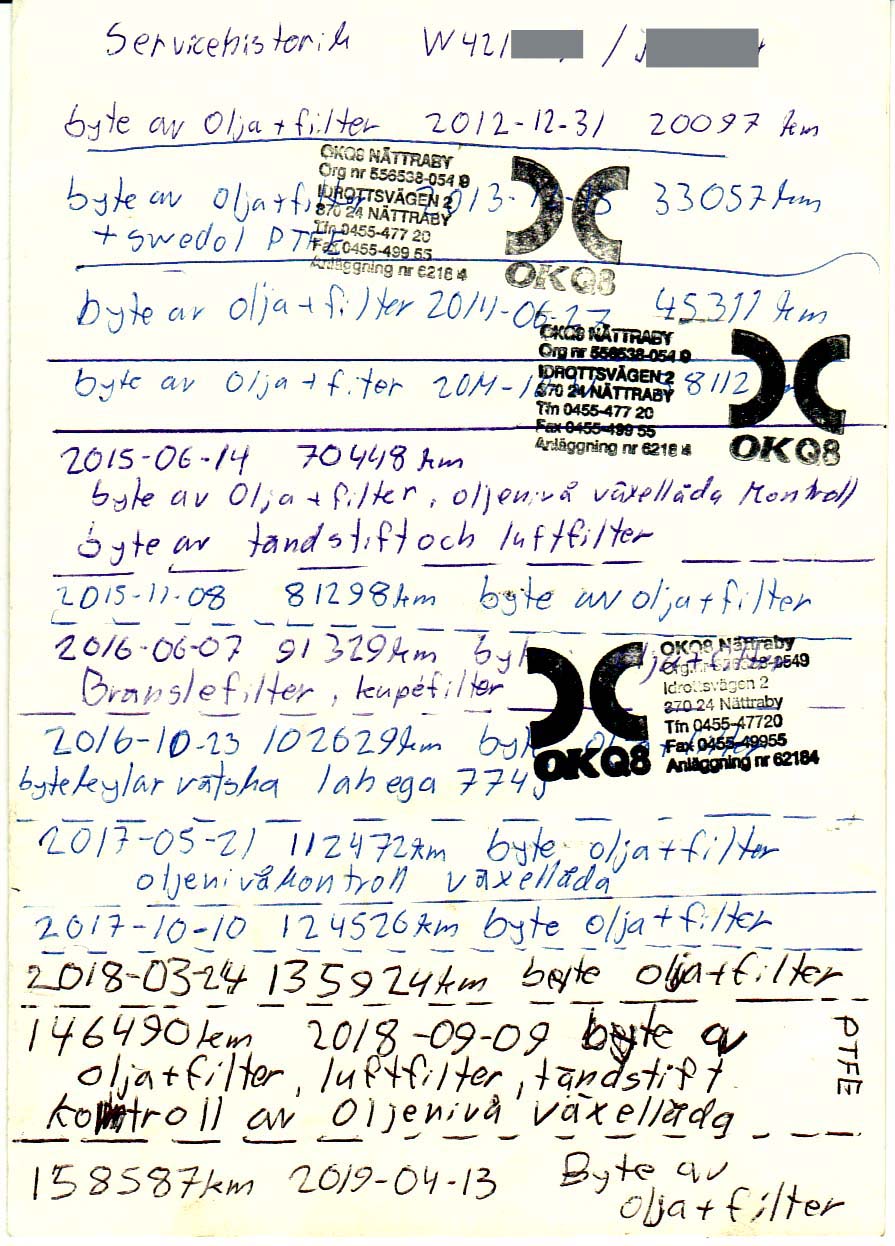 Servicehistorik W421 /
byte av olja + filter 2012-12-31 20097 km
OKQ8 NÄTTRABY
Org nr 556538-054 9
IDROTTSVÄGEN 2
370 24 NÄTTRABY
Tfn 0455-477 20
Fax 0455-499 55
Anläggning nr 6218 4
OKQ8
byte av olja + filter 2013-12- 33057 km
+ swedol PTFE
byte av olja + filter 2014-06-27 45311 km
OKQ8 NÄTTRABY
Org nr 556538-054 9
IDROTTSVÄGEN 2
370 24 NÄTTRABY
Tfn 0455-477 20
Fax 0455-499 55
Anläggning nr 6218 4
OKQ8
byte av olja + filter 2014- 8112
2015-06-14 70448 km
byte av olja + filter, oljenivå växellåda kontroll
byte av tändstift och luftfilter
2015-11-08 81298 km byte av olja + filter
2016-06-07 91329 km byte olja + filter
Bränslefilter, kupéfilter
OKQ8
OKQ8 Nättraby
Org.nr 556538-0549
Idrottsvägen 2
370 24 Nättraby
Tfn 0455-47720
Fax 0455-49955
Anläggning nr 62184
2016-10-23 102629 km byte
byte kylar vätska lahega 774
2017-05-21 112472 km byte olja + filter
oljenivåkontroll växellåda
2017-10-10 124526 km byte olja + filter
2018-03-24 135924 km byte olja + filter
146490 km 2018-09-09 byte av
olja + filter, luftfilter, tändstift
kontroll av oljenivå växellåda
PTFE
158587 km 2019-04-13 Byte av
olja + filter